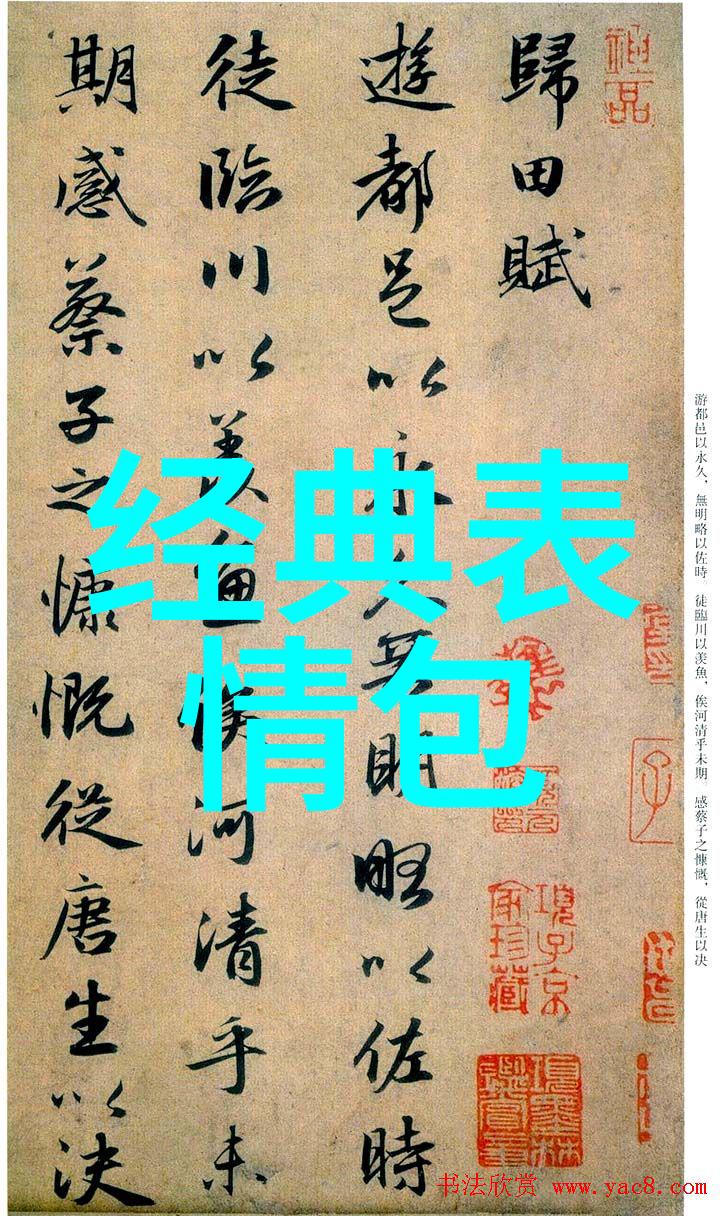 歸田賦
遊都邑以永久無明略以佐時
徒臨川以羨魚俟河清乎未
期感蔡子之慷慨從唐生以决
经典表
情包
游都邑以永久，無明略以佐時。徒臨川以羨魚，俟河清乎未期。感蔡子之慷慨，從唐生以决
項子京
家珍藏
項墨林
鑑賞章
子
书法欣赏 www.yac8.com